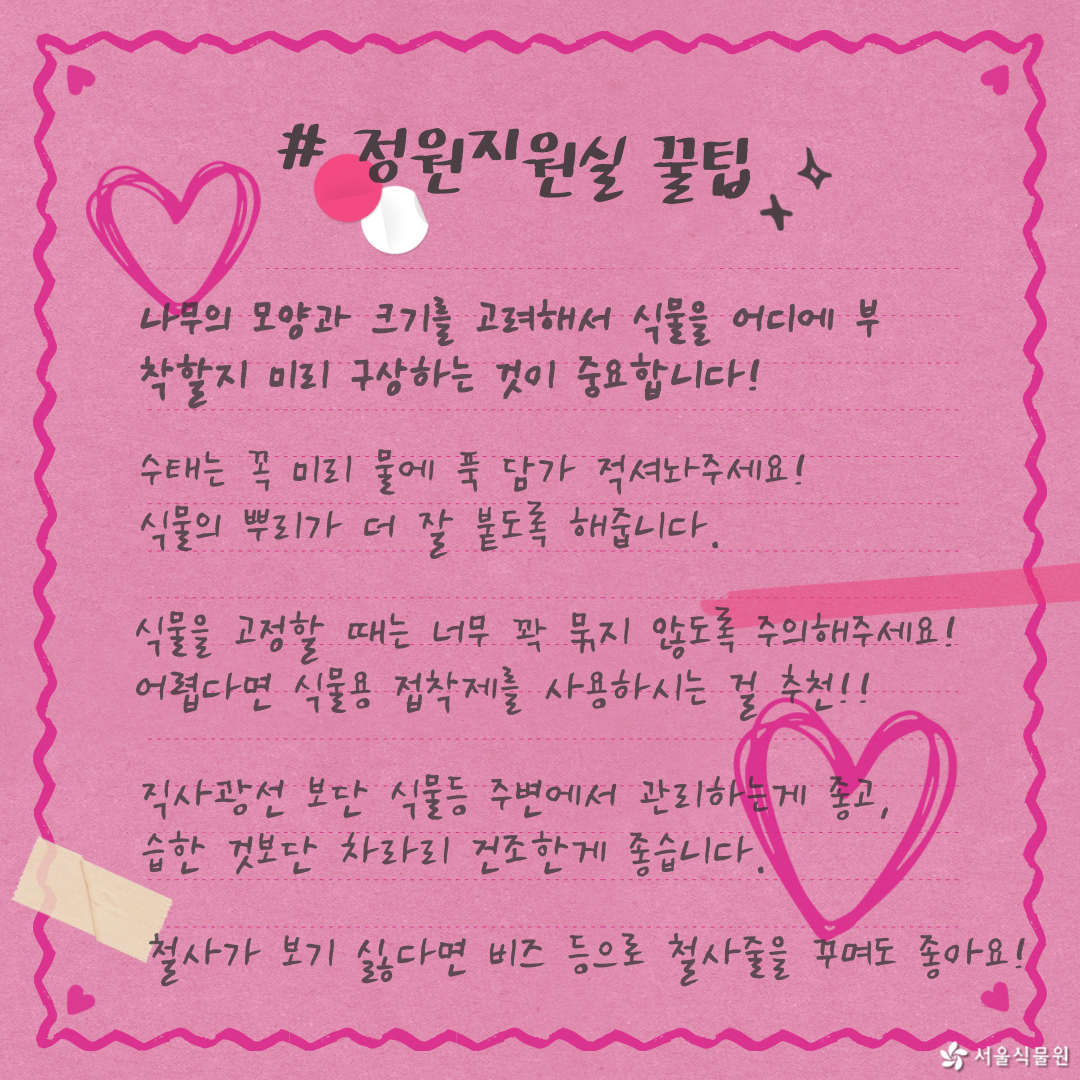 # 정원지원실 꿀팁
나무의 모양과 크기를 고려해서 식물을 어디에 부
착할지 미리 구상하는 것이 중요합니다!
수태는 꼭 미리 물에 푹 담가 적셔놔주세요!
식물의 뿌리가 더 잘 붙도록 해줍니다.
식물을 고정할 때는 너무 꽉 묶지 않도록 주의해주세요!
어렵다면 식물용 접착제를 사용하시는 걸 추천!!
직사광선 보단 식물등 주변에서 관리하는게 좋고,
습한 것보단 차라리 건조한게 좋습니다.
철사가 보기 싫다면 비즈 등으로 철사줄을 꾸며도 좋아요!
서울식물원